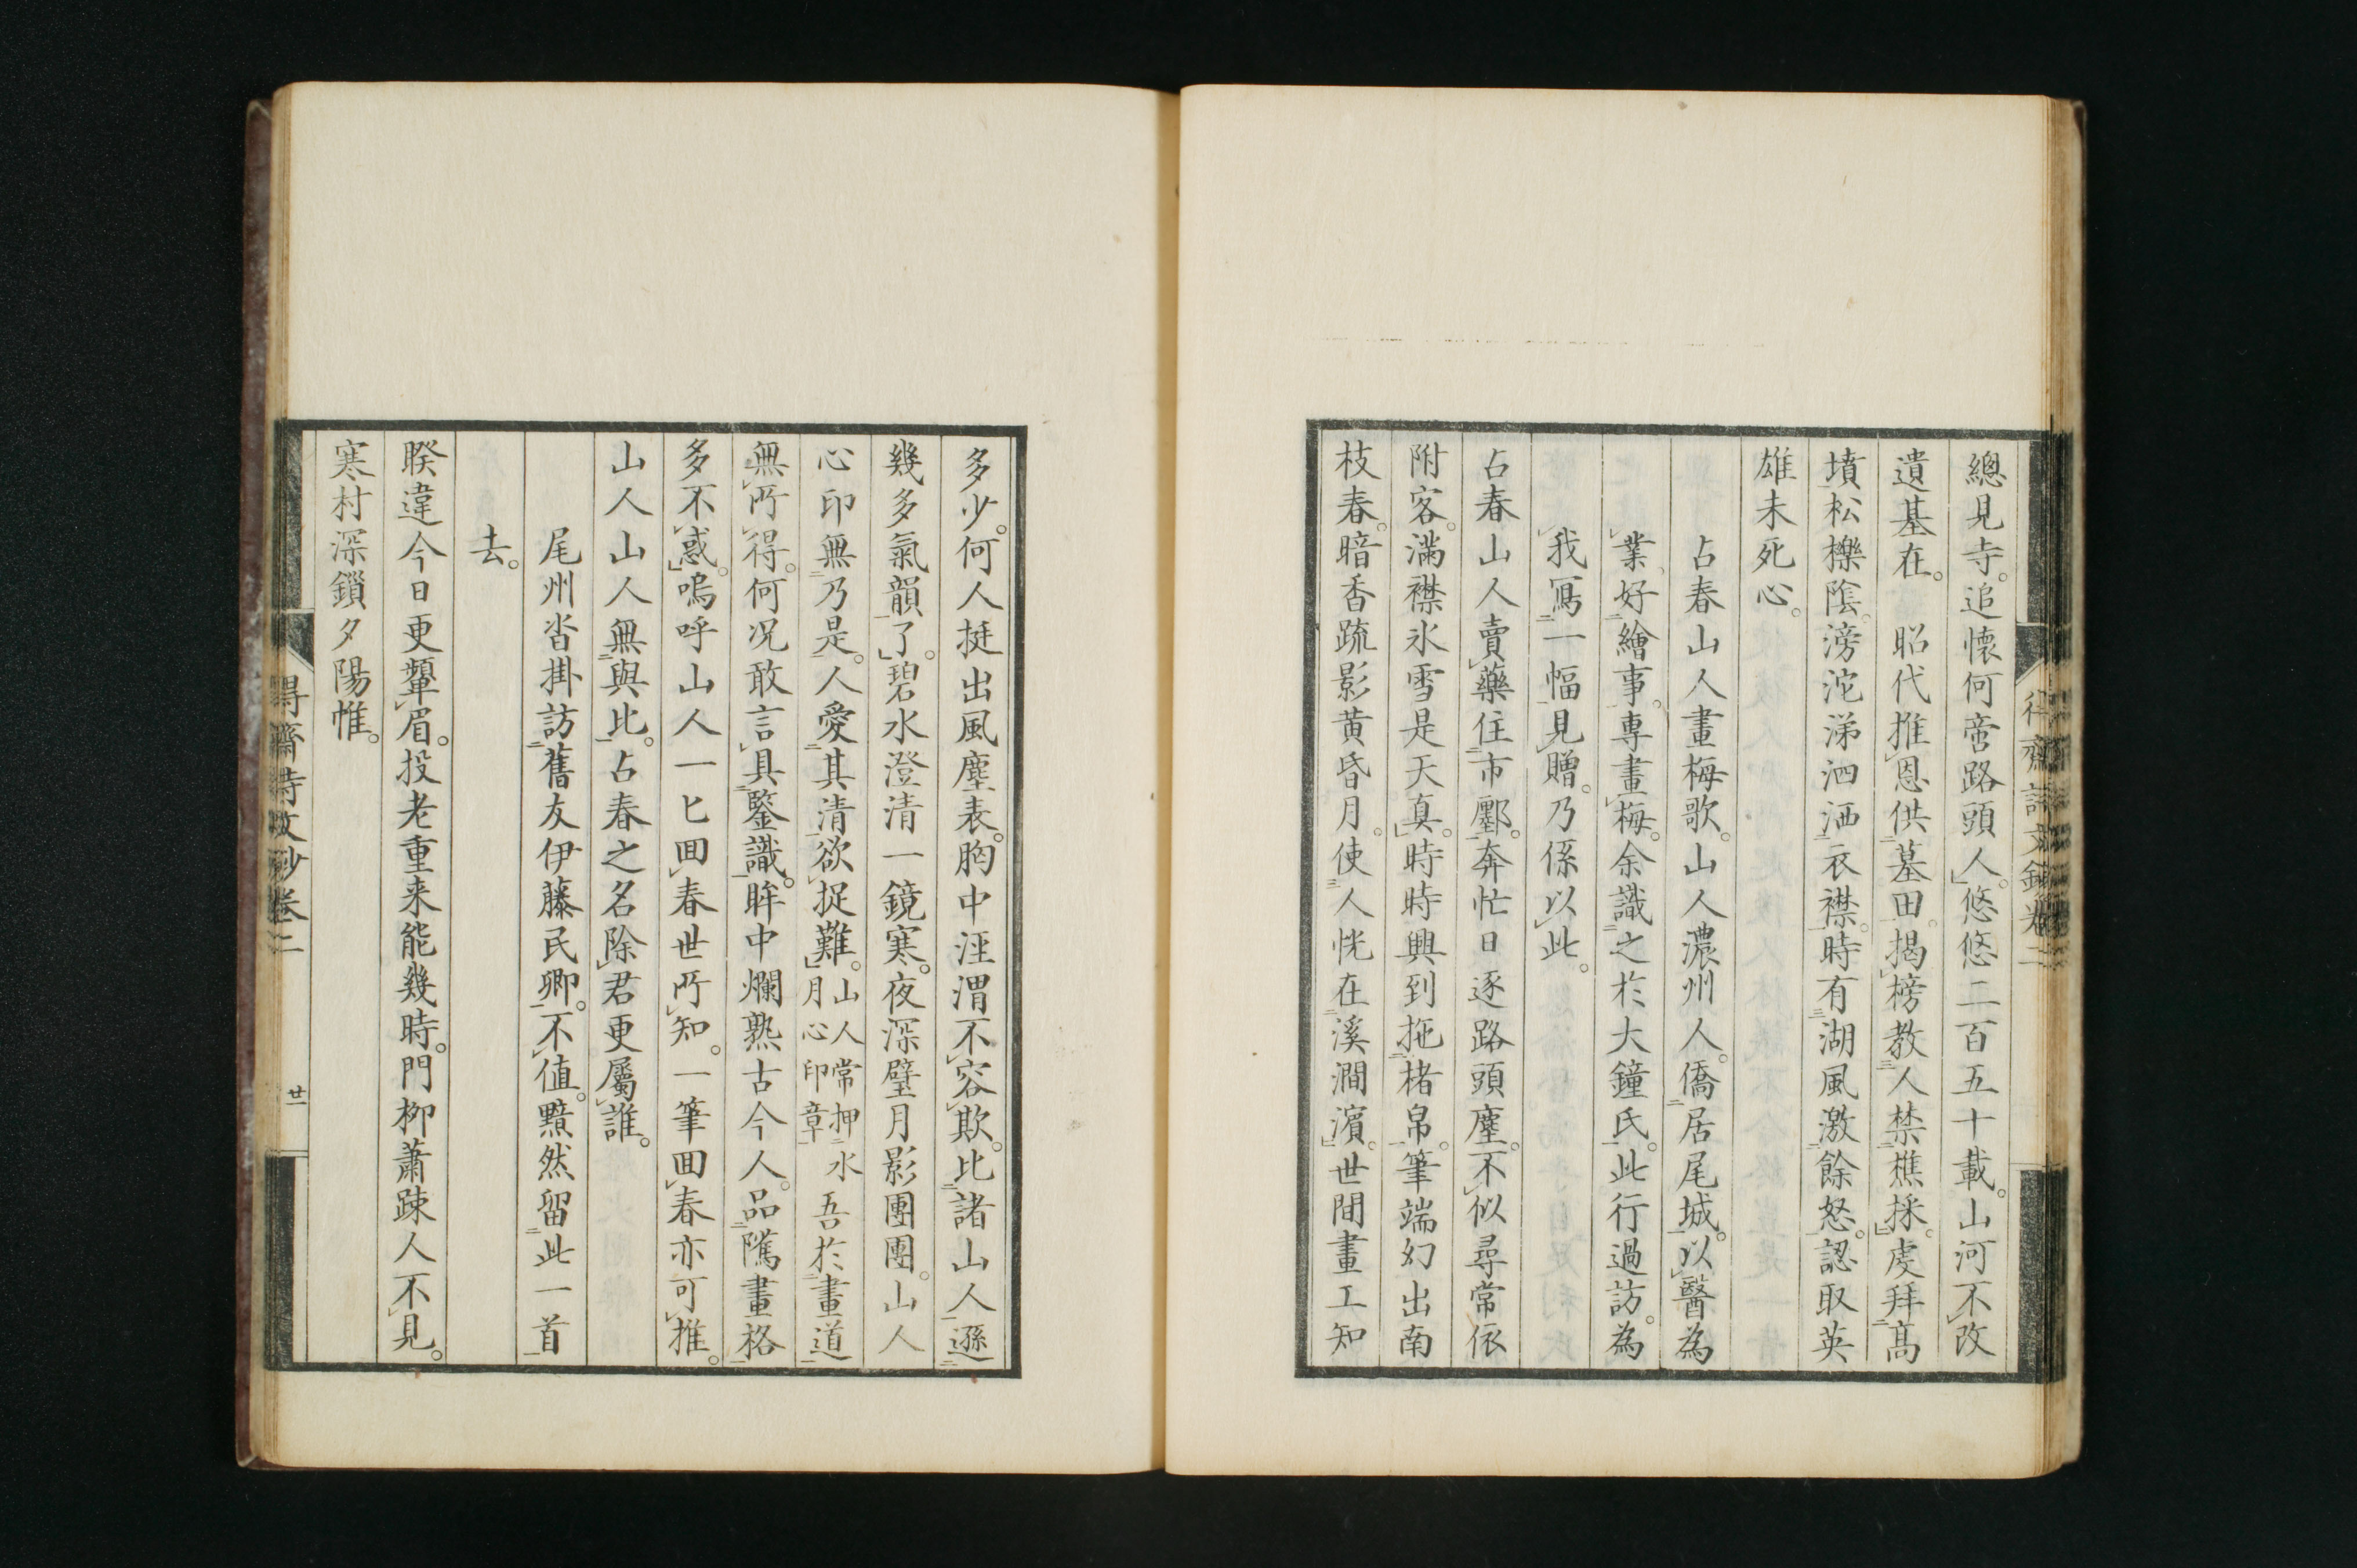 總見寺。追懷何啻路頭人。悠悠二百五十載。山河不改
遺基在。昭代推恩供墓田。揭榜教人禁樵採。虔拜高
墳松櫟陰。滂沱涕泗洒衣襟。時有湖風激餘怒。認取英
雄未死心。
占春山人畫梅歌。山人濃州人。僑居尾城。以醫為
業、好繪事。專畫梅。余識之於大鐘氏。此行過訪。為
我寫一幅見贈。乃係以此。
占春山人賣藥住市鄽。奔忙日逐路頭塵。不似尋常依
附客。滿襟氷雪是天真。時時興到拖楮帛。筆端幻出南
枝春。暗香疏影黄昏月。使人恍在溪澗濱。世間畫工知
多少。何人挺出風塵表。胸中涇渭不容欺。比諸山人遜
幾多氣韻了。碧水澄清一鏡寒。夜深璧月影團團。山人
心印無乃是。人愛其清欲捉難。山人常押水月心印章 吾於畫道
無所得。何況敢言具鑒識。眸中爛熟古今人。品隲畫格
多不惑。嗚呼山人一匕回春世所知。一筆回春亦可推。
山人山人無與比。占春之名除君更屬誰。
尾州沓掛訪舊友伊藤民卿。不值。黯然留此一首
去。
睽違今日更顰眉。投老重来能幾時。門柳蕭踈人不見。
寒村深鎖夕陽帷。
齋詩文鈔卷二
廿一